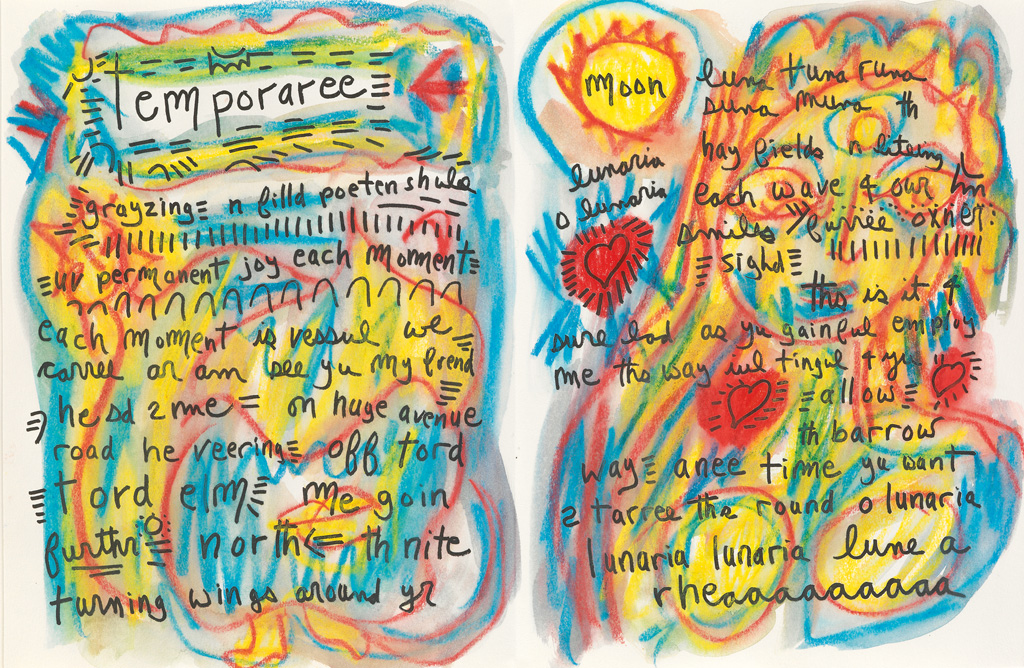 temporaree
grayzing n filld poetenshula
ur permanent joy each moment
each moment is vessul we
carree or am see yu my frend
he sd 2 me on huge avenue
road he veering off tord
tord elm me goin
furthr north th nite
turning wings around yr
moon
luna tuna runa
suna muna th
hay fields n
each wave 4 our
smiles furree
sighd
this is it 4
sure lad as yu gainful employ
me this way iul tingul 4 yu
allow
th barrow
way anee time yu want
2 tarree the round o lunaria
lunaria lunaria lune a
rheaaaaaaaaa
lunaria
o lunaria